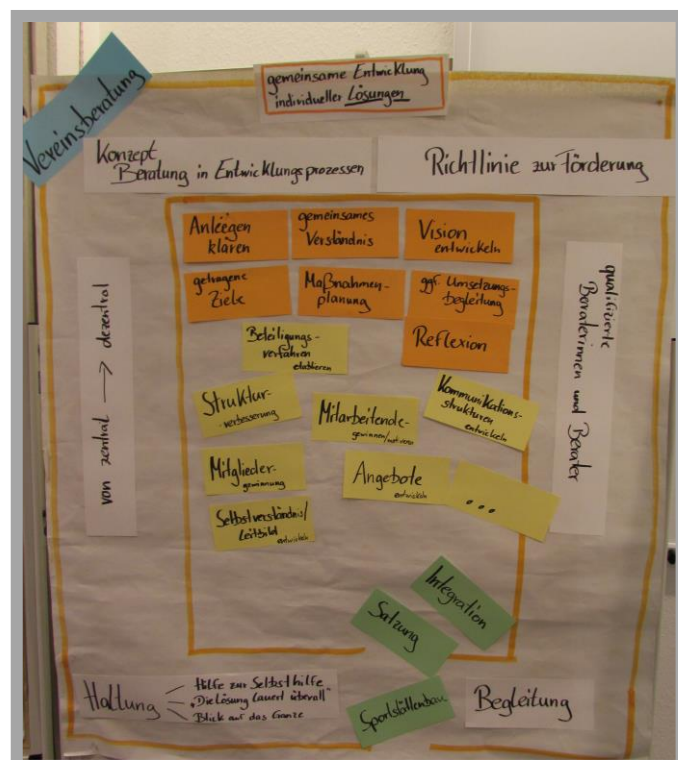 Vereinsberatung
gemeinsame Entwicklung
individueller Lösungen
Konzept
Beratung in Entwicklungsprozessen
Richtlinie zur Förderung
Anliegen
klären
gemeinsames
Verständnis
Vision
entwickeln
getragene
Ziele
Maßnahmen-
planung
ggf. Umsetzungs-
begleitung
Beteiligungs-
verfahren
etablieren
Reflexion
von zentral → dezentral
qualifizierte
Beraterinnen und Berater
Struktur-
-verbesserung
Mitarbeitende-
gewinnen/motivieren
Kommunikations-
strukturen
entwickeln
Mitglieder-
gewinnung
Angebote
entwickeln
...
Selbstverständnis/
Leitbild
entwickeln
Integration
Satzung
Sportstättenbau
Haltung
Hilfe zur Selbsthilfe
"Die Lösung lauert überall"
Blick auf das Ganze
Begleitung